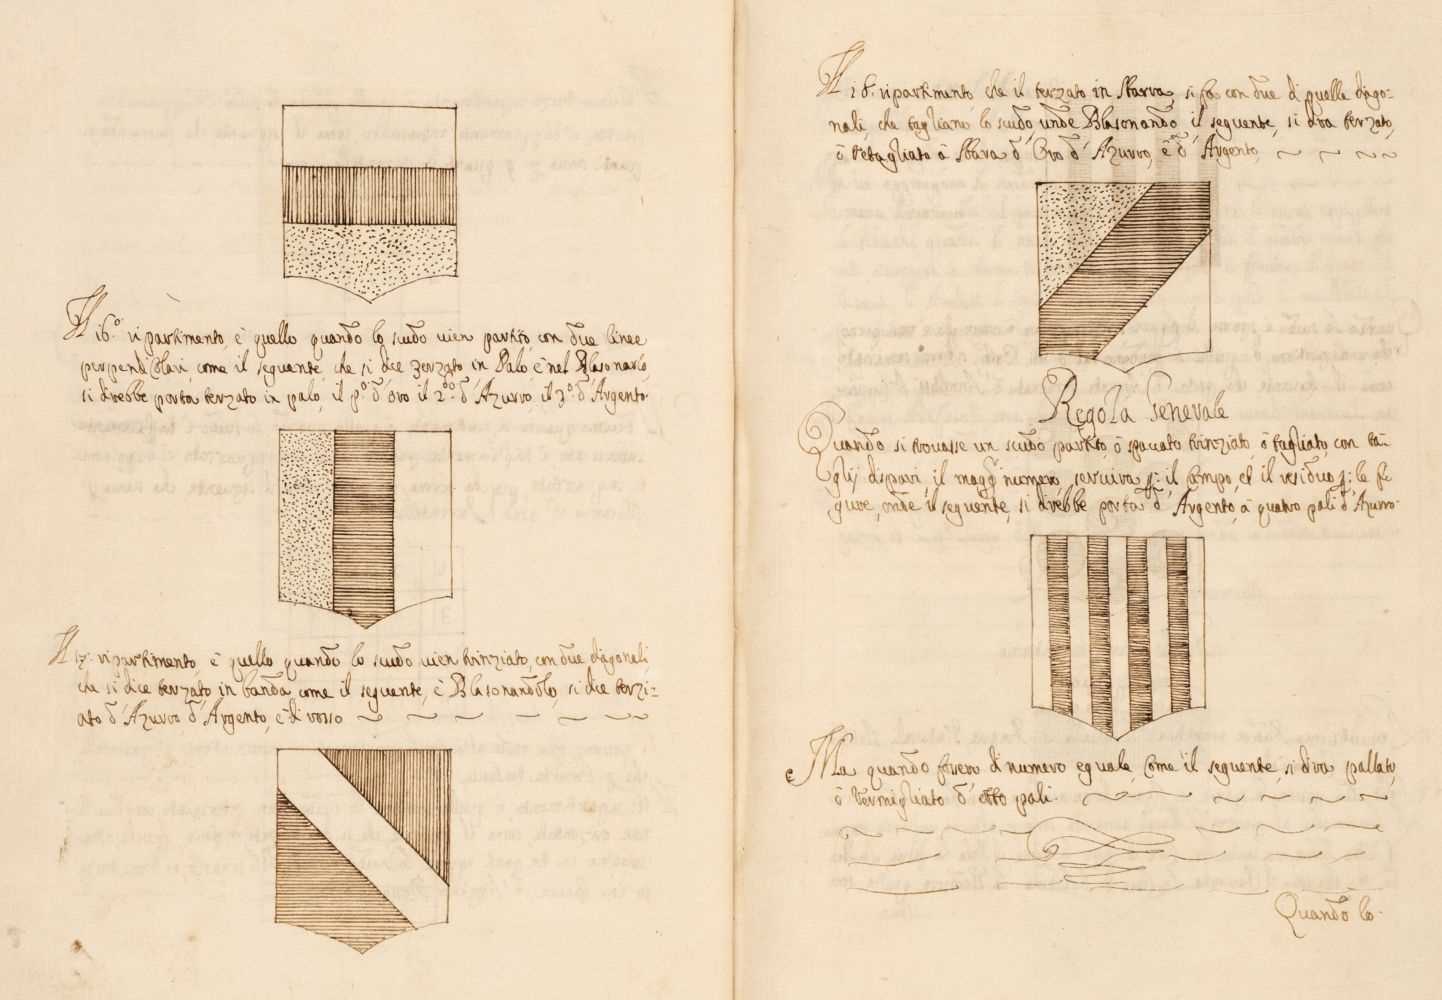 Il 16.º ripartimento è quello quando lo scudo vien partito con due linee
perpendicolari, come il seguente, che si dice Terzato in Palo, è nel Blasonarlo,
si direbbe porta terzato in palo, il pº. d' oro il 2.º d' Azurro, il 3.º d' Argento.
Il 17.º ripartimento, è quello quando lo scudo vien trinziato, con due diagonali,
che si dice terzato, in banda come il seguente, è Blasonandolo, si dice terzi-
ato d' Azurro, d' Argento, è di rosso
Il 18.º ripartimento che il terzato in Sbarra si fa con due di quelle diago-
nali, che tagliano lo scudo, unde Blasonando il seguente, si dira terzato,
ò ritagliato à Sbara d' Oro d' Azurro, è d' Argento
Regola Generale
Quando si trovasse un scudo partito ò spacato trinziato, ò tagliato, con ta-
glij dispari, il magg. numero, serviva p: il campo, et il residuo p: le fi
gure, onde il seguente, si direbbe porta d' Argento, à quatro pali d' Azurro.
e Ma quando fosero di numero eguale, come il seguente, si dira pallato,
ò Vermigliato d' otto pali.
Quando lo.